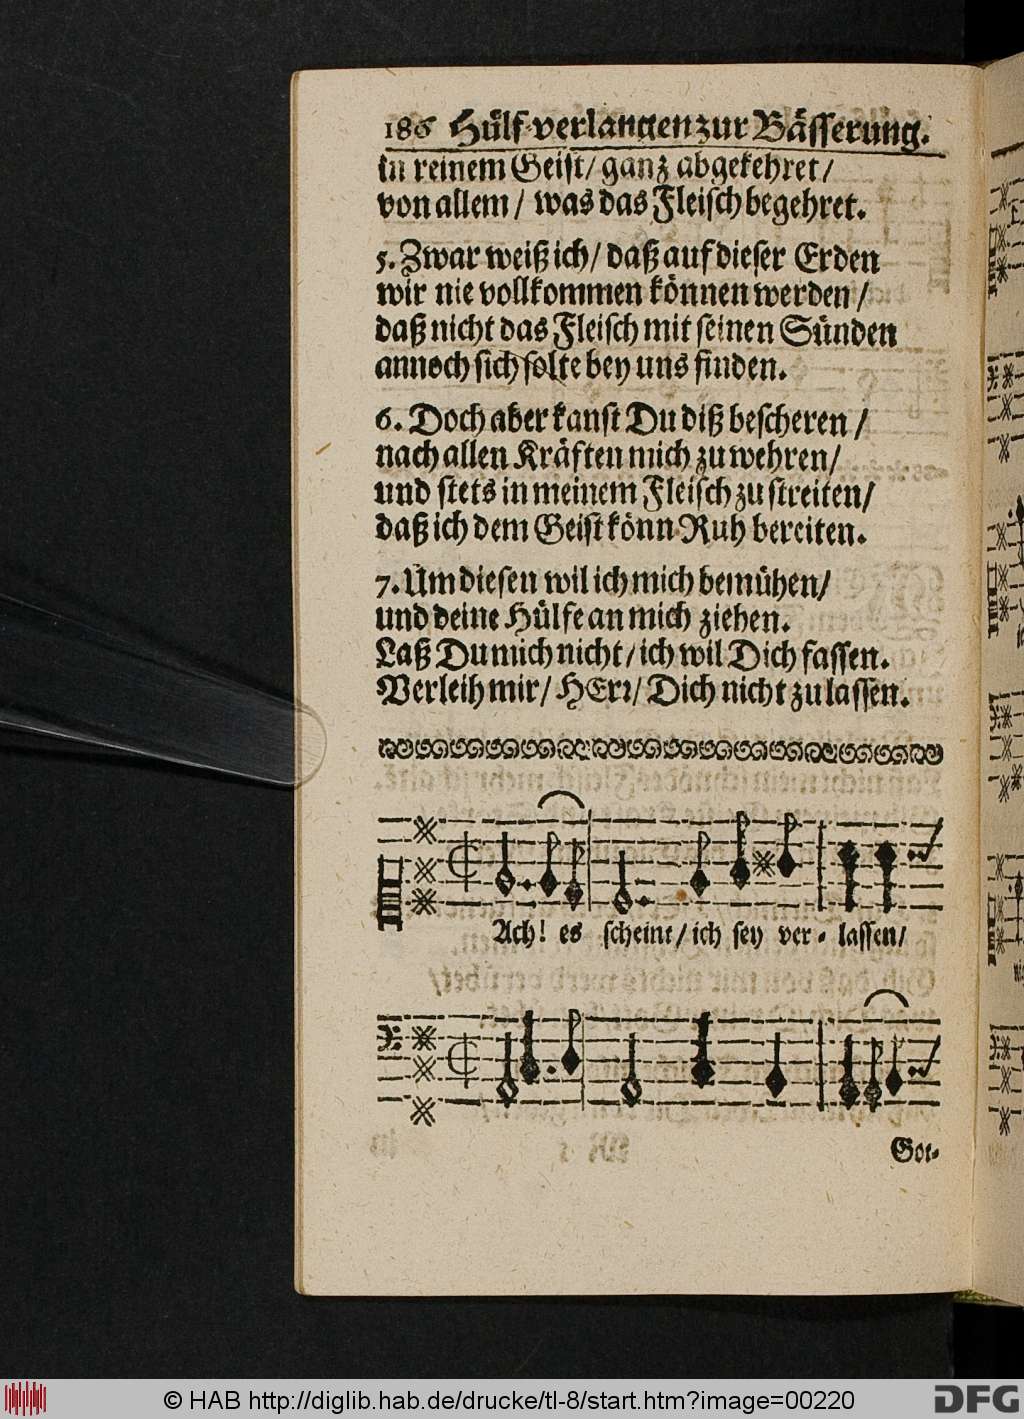 186 Hülf-verlangen zur Bässerung.
in reinem Geist/ ganz abgekehret/
von allem / was das Fleisch begehret.
5. Zwar weiß ich/ daß auf dieser Erden
wir nie vollkommen können werden /
daß nicht das Fleisch mit seinen Sünden
annoch sich solte bey uns finden.
6. Doch aber kanst Du diß bescheren /
nach allen Kräften mich zu wehren/
und stets in meinem Fleisch zu streiten/
daß ich dem Geist könn Ruh bereiten.
7. Um diesen wil ich mich bemühen/
und deine Hülfe an mich ziehen.
Laß Du mich nicht/ ich wil Dich fassen.
Verleih mir/ HErr/ Dich nicht zu lassen.
Ach! es scheint/ ich sey ver- lassen/
Got-
© HAB http://diglib.hab.de/drucke/tl-8/start.htm?image=00220
DFG